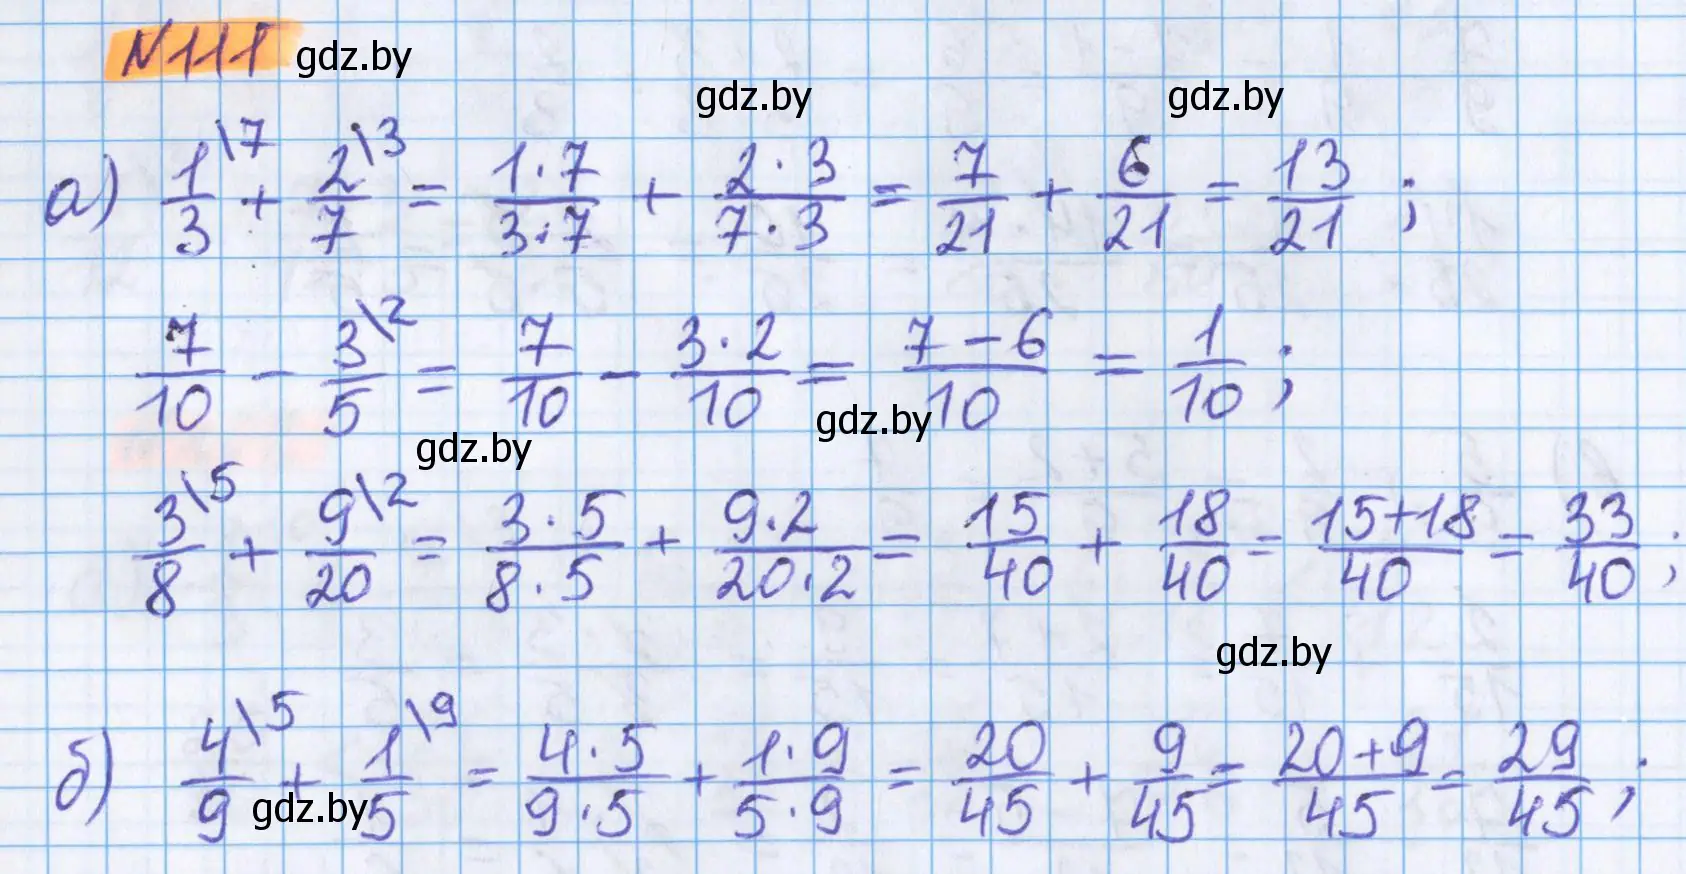 №111 gdz.by
gdz.by gdz.by
а) 1/3\7 + 2/7\3 = 1·7/3·7 + 2·3/7·3 = 7/21 + 6/21 = 13/21 ;
7/10 - 3/5\2 = 7/10 - 3·2/10 = 7-6/10 = 1/10 ;
gdz.by gdz.by
3/8\5 + 9/20\2 = 3·5/8·5 + 9·2/20·2 = 15/40 + 18/40 = 15+18/40 = 33/40 ;
gdz.by
б) 4/9\5 + 1/5\9 = 4·5/9·5 + 1·9/5·9 = 20/45 + 9/45 = 20+9/45 = 29/45 ;
gdz.by